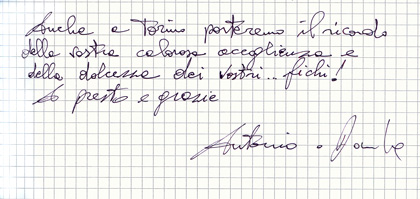 Anche a Torino porteremo il ricordo
della vostra calorosa accoglienza e
della dolcezza dei vostri... fichi!
A presto e grazie
Antonio e